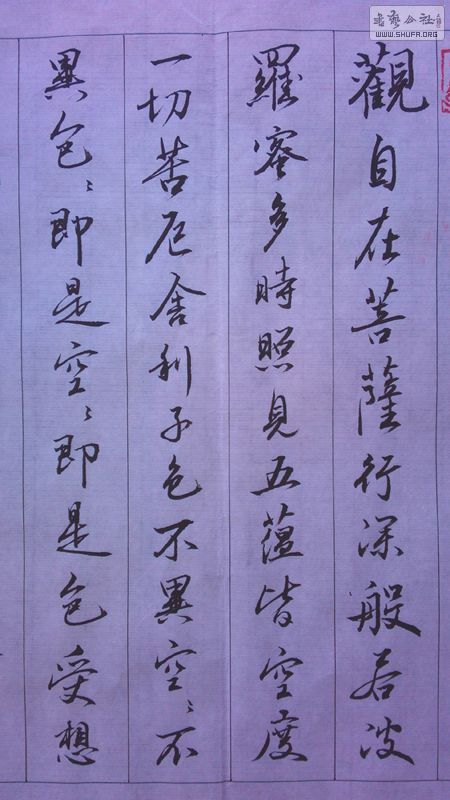 觀自在菩薩行深般若波
羅蜜多時照見五蘊皆空度
一切苦厄舍利子色不異空〻不
異色〻即是空〻即是色受想
書藝公社
WWW.SHUFA.ORG